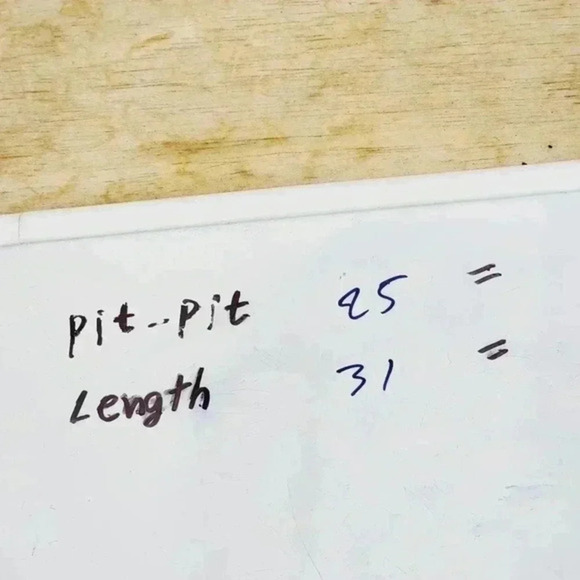 pit-pit 25 =
Length 31 =